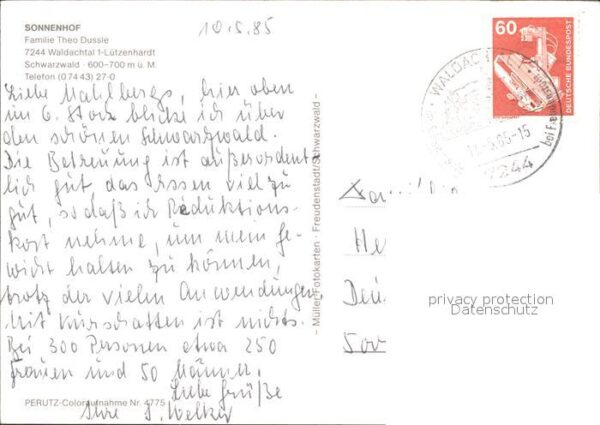 SONNENHOF
Familie Theo Dussle
7244 Waldachtal 1-Lützenhardt
Schwarzwald · 600-700 m ü. M.
Telefon (0 74 43) 27-0
10.5.85
Liebe Mahlbergs, hier oben
im 6. Stock blicke ich über
den schönen Schwarzwald.
Die Betreuung ist außerordent-
lich gut das Essen viel zu
gut, so daß ich Reduktions-
kost nehme, um mein Ge-
wicht halten zu können,
trotz der vielen Anwendungen.
Mit Kurschatten ist nichts.
Bei 300 Personen etwa 250
Frauen und 50 Männer.
Liebe Grüße
Ihre J. Welker
PERUTZ-Coloraufnahme Nr. 4775
– Müller Fotokarten · Freudenstadt/Schwarzwald –
60
DEUTSCHE BUNDESPOST
WALDAC
5.85-15
7244
privacy protection
Datenschutz